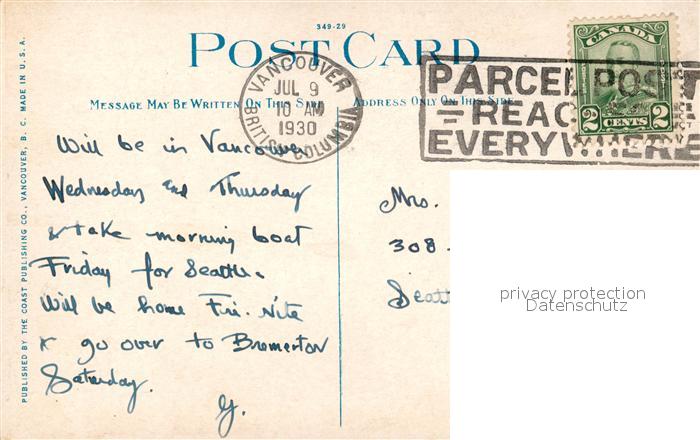 349-29
POST CARD
CANADA
2 CENTS 2
VANCOUVER
JUL 9
10 AM
1930
BRITISH COLUMBIA
PARCEL POST
REAC
EVERYWHERE
MESSAGE MAY BE WRITTEN ON THIS SIDE
ADDRESS ONLY ON THIS SIDE
PUBLISHED BY THE COAST PUBLISHING CO., VANCOUVER, B. C. MADE IN U. S. A.
Will be in Vancouver
Wednesday and Thursday
& take morning boat
Friday for Seattle.
Will be home Fri. Nite
& go over to Bremerton
Saturday.
Y.
Mrs.
308
Seatt
privacy protection
Datenschutz